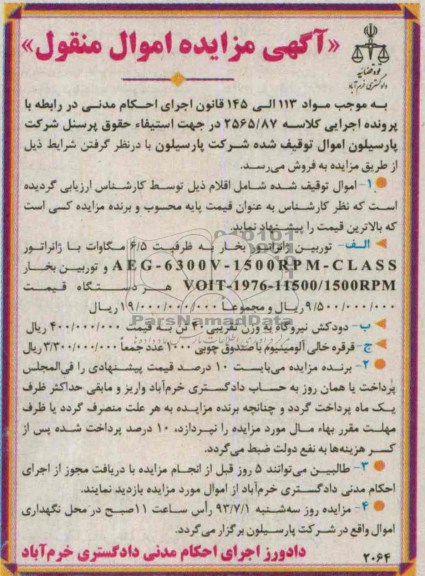 «آگهی مزایده اموال منقول»
قوه قضائیه
دادگستری خرم‌آباد
به موجب مـواد ۱۱۳ الـی ۱۴۵ قانون اجرای احـکام مدنـی در رابطه با
پرونده اجرایی کلاسـه ۲۵۶۵/۸۷ در جهت استیفاء حقوق پرسنل شرکت
پارسیلون اموال توقیف شده شـرکت پارسیلون با درنظر گرفتن شرایط ذیل
از طریق مزایده به فروش می‌رسـد.
۱- اموال توقیف شـده شـامل اقلام ذیل توسـط کارشناس ارزیابی گردیده
است که نظر کارشناس به عنوان قیمت پایه محسوب و برنده مزایده کسی است
که بالاترین قیمت را پیشنهاد نماید.
الـف- توربین ژانراتـور بخـار بـه ظرفیـت ۶/۵ مگاوات با ژانراتـور
AEG-6300V-1500RPM-CLASS و توربین بخـار
VOIT-1976-11500/1500RPM هـر دسـتگاه قیمـت
۹/۵۰۰/۰۰۰/۰۰۰ ریـال و مجموعـاً ۱۹/۰۰۰/۰۰۰/۰۰۰ ریـال
ب- دودکش نیروگاه به وزن تقریبی ۴۰ تن به قیمت ۴۰۰/۰۰۰/۰۰۰ ریال
ج- قرقره خالی آلومینیوم با صندوق چوبی ۱۰۰۰ عدد جمعاً ۳/۳۰۰/۰۰۰/۰۰۰ ریال
۲- برنـده مزایده می‌بایسـت ۱۰ درصـد قیمت پیشنهادی را فی‌المجلس
پرداخت یا همان روز به حساب دادگستری خرم‌آباد واریز و مابقی حداکثر ظرف
یک ماه پرداخت گردد و چنانچه برنده مزایـده به هر علت منصرف گردد یا ظرف
مهلـت مقرر بهاء مـال مورد مزایده را نپـردازد، ۱۰ درصد پرداخت شـده پس از
کسر هزینه‌ها به نفع دولت ضبط می‌گردد.
۳- طالبیـن می‌توانند ۵ روز قبل از انجـام مزایده با دریافت مجوز از اجرای
احکام مدنی دادگستری خرم‌آباد از اموال مورد مزایده بازدید نمایند.
۴- مزایده روز سه‌شنبه ۹۳/۷/۱ رأس ساعت ۱۱ صبح در محل نگهداری
اموال واقع در شـرکت پارسیلون برگزار می‌گردد.
دادورز اجرای احکام مدنی دادگستری خرم‌آباد
۲۰۶۴
ParsNamadData